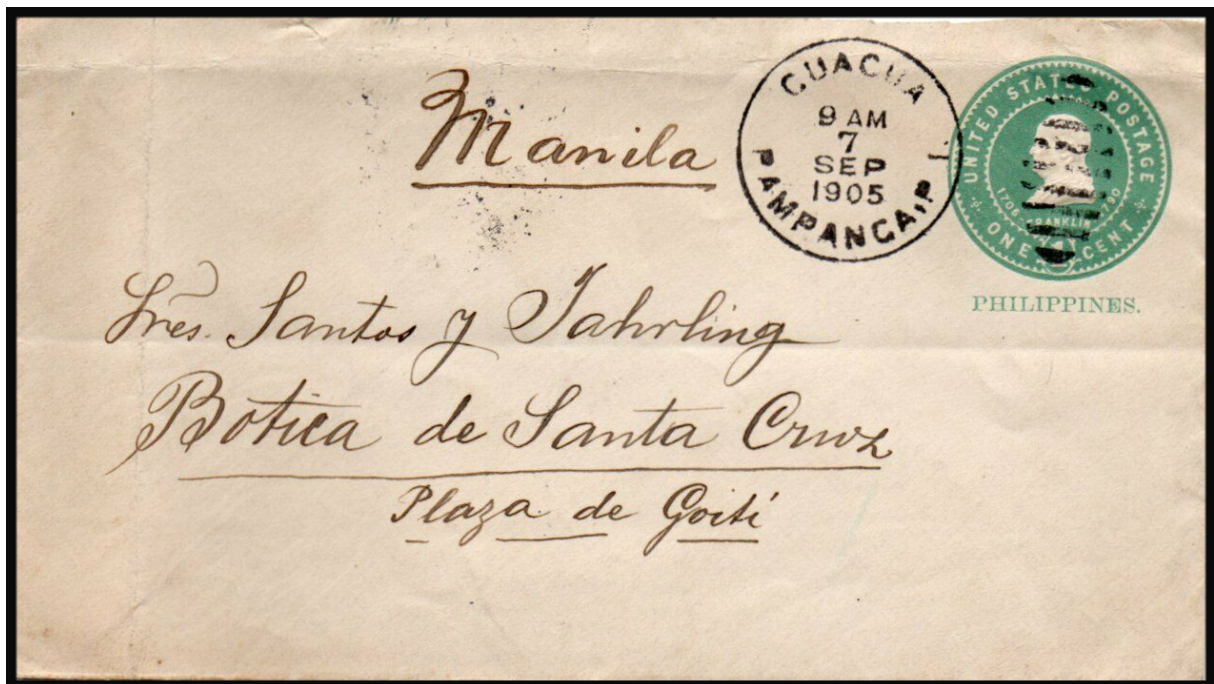 Manila
GUAGUA
9 AM
7
SEP
1905
PAMPANGA, P I
UNITED STATES POSTAGE
1706 FRANKLIN 1790
ONE CENT
PHILIPPINES.
Sres. Santos y Jahrling
Botica de Santa Cruz
Plaza de Goiti